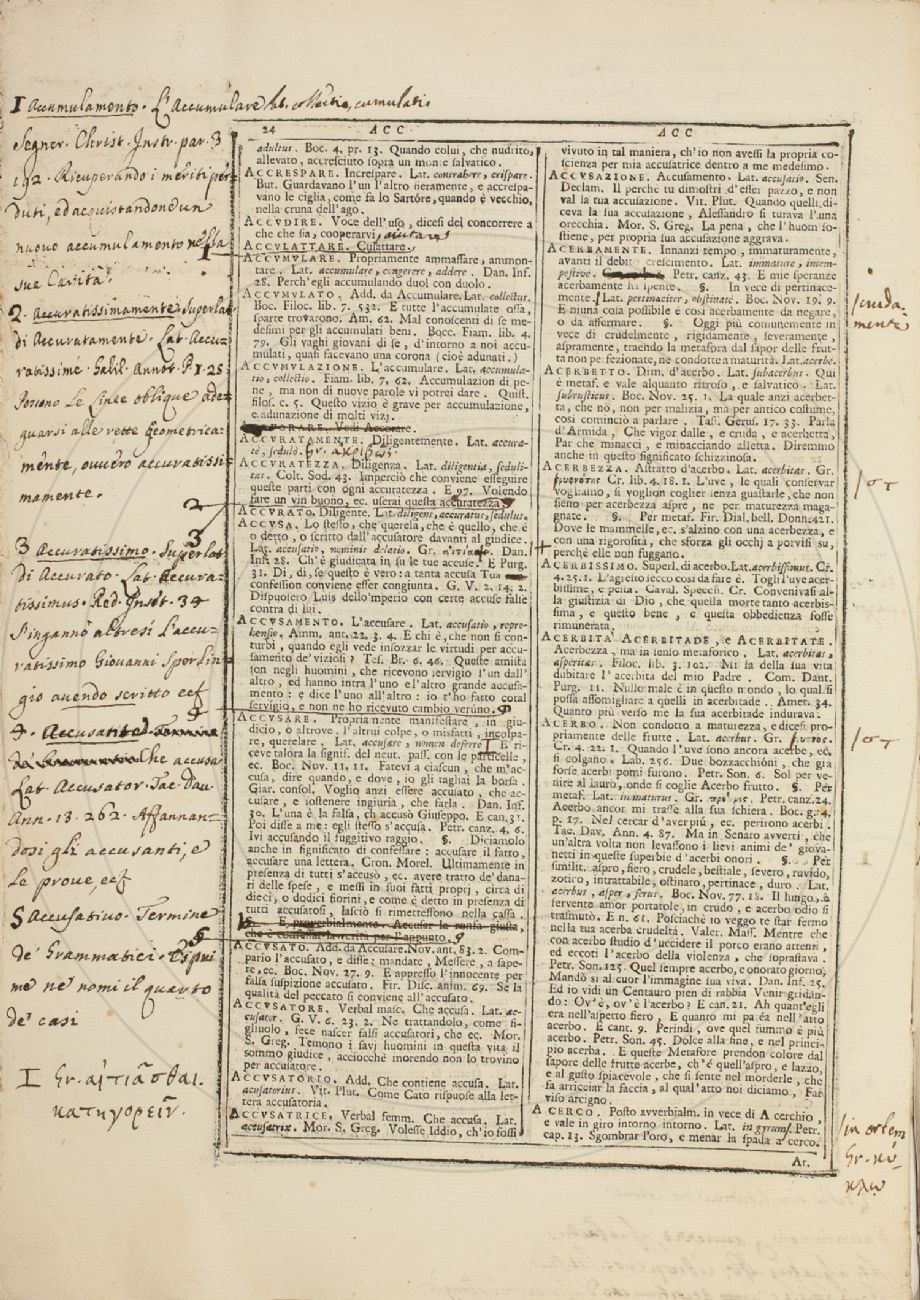 1 Accumulamento. L'Accumulare lat. collectio, cumulatio
Segner. Christ. Instr. par. 3
192. Ricuperando i mériti per-
duti, ed acquistandone un
nuovo accumulamento nella
sua Carità.
2. Accuratissimamente. Superlat.
di Accuratamente. Lat. Accu-
ratissime. Galil. Annot. P. 1. 25
Possono le Linee oblique ade-
guarsi alle rette Geometrica-
mente, ovvero accuratissi-
mamente.
2
3
3 Accuratissimo. Superlat.
di Accurato. Lat. Accura-
tissimus. Red. Inset. 34
S'ingannò altresì l'accu-
ratissimo Giovanni Sperlin-
gio avendo scritto ec.
4
4. Che accusa
Lat. Accusator. Tac. Dav.
Ann. 13. 262. Affannan-
dosi gli accusanti, e
le prove, ec.
5 Accusativo. Termine
de' Grammatici. Espri
me ne' nomi il quarto
de' casi
I Gr. αἰτιᾶσθαι.
κατηγορεῖν.
24 ACC
adultus. Boc. 4. pr. 13. Quando colui, che nudrito,
allevato, accresciuto sopra un monte salvatico.
ACCRESPARE. Increspare. Lat. contrahere, crispare.
But. Guardavano l'un l'altro fieramente, e accrespa-
vano le ciglia, come fa lo Sartóre, quando è vecchio,
nella cruna dell'ago.
ACCVDIRE. Voce dell'uso, dicesi del concorrere a
che che sia, cooperarvi, aiutarvi
ACCVLATTARE. Culattare.
ACCVMVLARE. Propriamente ammassare, ammon-
tare. Lat. accumulare, congerere, addere. Dan. Inf.
28. Perch'egli accumulando duol con duolo.
ACCVMVLATO. Add. da Accumulare. Lat. collectus.
Boc. Filoc. lib. 7. 532. E tutte l'accumulate ossa,
sparte trovarono. Am. 62. Mal conoscenti di se me-
desimi per gli accumulati beni. Bocc. Fiam. lib. 4.
79. Gli vaghi giovani di se, d'intorno a noi accu-
mulati, quasi facevano una corona (cioè adunati.)
ACCVMVLAZIONE. L'accumulare. Lat. accumula-
tio, collectio. Fiam. lib. 7, 62. Accumulazion di pe-
ne, ma non di nuove parole vi potrei dare. Quist.
filos. c. 5. Questo vizio è grave per accumulazione,
e adunazione di molti vizj.
Vedi Accorare.
ACCVRATAMENTE. Diligentemente. Lat. accura-
te, sedulò. Gr. ἀκριβῶς.
ACCVRATEZZA. Diligenza. Lat. diligentia, seduli-
tas. Colt. Sod. 43. Imperciò che conviene eseguire
queste parti con ogni accuratezza. E 97. Volendo
fare un vin buono, ec. userai questa accuratezza.
ACCVRATO. Diligente. Lat. diligens, accuratus, sedulus.
ACCVSA. Lo stesso, che querela, che è quello, che è
o detto, o scritto dall'accusatore davanti al giudice.
Lat. accusatio, nominis delatio. Gr. Dan.
Inf. 28. Ch'è giudicata in su le tue accuse. E Purg.
31. Di, di, se questo è vero: a tanta accusa Tua
Confession conviene esser congiunta. G. V. 2. 14. 2.
Dispuosero Luis dello'mperio con certe accuse false
contra di lui.
ACCVSAMENTO. L'accusare. Lat. accusatio, repre-
hensio. Amm. ant. 22. 3. 4. E chi è, che non si con-
turbi, quando egli vede insozzar le virtudi per accu-
samento de' viziosi? Tes. Br. 6. 46. Queste amistà
son negli huomini, che ricevono servigio l'un dall'
altro, ed hanno intra l'uno e l'altro grande accusa-
mento: e dice l'uno all'altro: io t'ho fatto cotal
servigio, e non ne ho ricevuto cambio veruno.
ACCVSARE. Propriamente manifestare, in giu-
dicio, o altrove, l'altrui colpe, o misfatti, incolpa-
re, querelare. Lat. accusare, nomen deferre. E ri-
ceve talora il signif. del neut. pass. con le particelle,
ec. Boc. Nov. 11. 11. Fatevi a ciascun, che m'ac-
cusa, dire quando, e dove, io gli tagliai la borsa.
Giar. consol. Voglio anzi essere accusato, che ac-
cusare, e sostenere ingiuria, che farla. Dan. Inf.
30. L'una è la falsa, ch accusò Giuseppo. E can. 31.
Poi disse a me: egli stesso s'accusa. Petr. canz. 4. 6.
Ivi accusando il fuggitivo raggio. §. Diciamolo
anche in significato di confessare: accusare il fatto,
accusare una lettera. Cron. Morel. Ultimamente in
presenza di tutti s'accusò, ec. avere tratto de' dana-
ri delle spese, e messi in suoi fatti proprj, circa di
dieci, o dodici fiorini, e come è detto in presenza di
tutti accusatosi, lasciò si rimettessono nella cassa.
§. E proverbialmente. Accusar la ronfa giusta,
che è confessar lo scritti per l'appunto.
5
ACCVSATO. Add. da Accusare. Nov. ant. 83. 2. Com-
pario l'accusato, e disse: mandate, Messere, a sape-
re, ec. Boc. Nov. 27. 9. E appresso l'innocente per
falsa suspizione accusato. Fir. Disc. anim. 69. Se la
qualità del peccato si conviene all'accusato.
ACCVSATORE. Verbal masc. Che accusa. Lat. ac-
cusator. G. V. 6. 23. 2. Ne trattandolo, come fi-
gliuolo, fece nascer falsi accusatori, che ec. Mor.
S. Greg. Temono i savj huomini in questa vita il
sommo giudice, acciocchè morendo non lo trovino
per accusatore.
ACCVSATORIO. Add. Che contiene accusa. Lat.
accusatorius. Vit. Plut. Come Cato rispuose alla let-
tera accusatoria.
ACCVSATRICE. Verbal femm. Che accusa. Lat.
accusatrix. Mor. S. Greg. Volesse Iddio, ch'io fossi
ACC
vivuto in tal maniera, ch'io non avessi la propria co-
scienza per mia accusatrice dentro a me medesimo.
ACCVSAZIONE. Accusamento. Lat. accusatio. Sen.
Declam. Il perchè tu dimostri d'esser pazzo, e non
val la tua accusazione. Vit. Plut. Quando quelli di-
ceva la sua accusazione, Alessandro si turava l'una
orecchia. Mor. S. Greg. La pena, che l'huom so-
stiene, per propria sua accusazione aggrava.
ACERBAMENTE. Innanzi tempo, immaturamente,
avanti il debito crescimento. Lat. immature, intem-
pestive. Petr. canz. 43. E mie speranze
acerbamente ha spente. §. In vece di pertinace-
mente. Lat. pertinaciter, obstinatè. Boc. Nov. 19. 9.
E niuna cosa possibile è così acerbamente da negare,
o da affermare. §. Oggi più comunemente in
vece di crudelmente, rigidamente, severamente,
aspramente, traendo la metafora dal sapor delle frut-
ta non perfezionate, ne condotte a maturità. Lat. acerbe.
/cruda-
mente
ACERBETTO. Dim. d'acerbo. Lat. subacerbus. Qui
è metaf. e vale alquanto ritroso, e salvatico. Lat.
subrusticus. Boc. Nov. 25. 1. La quale anzi acerbet-
ta, che nò, non per malizia, ma per antico costume,
così cominciò a parlare. Tass. Gerus. 17. 33. Parla
d'Armida, Che vigor dalle, e cruda, e acerbetta,
Par che minacci, e minacciando alletta. Diremmo
anche in questo significato schizzinosa.
ACERBEZZA. Astratto d'acerbo. Lat. acerbitas. Gr.
Cr. lib. 4. 18. 1. L'uve, le quali conservar
vogliamo, si voglion coglier senza guastarle, che non
sieno per acerbezza aspre, ne per maturezza maga-
gnate. §. Per metaf. Fir. Dial. bell. Donn. 421.
Dove la mammelle, ec. s'alzino con una acerbezza, e
con una rigorosità, che sforza gli occhj a porvisi su,
perchè elle non fuggano.
ACERBISSIMO. Superl. di acerbo. Lat. acerbissimus. Cr.
4. 25. 1. L'agresto secco così da fare è. Togli l'uve acer-
bissime, e pesta. Caval. Specch. Cr. Convenivasi al-
la giustizia di Dio, che quella morte tanto acerbis-
sima, e questo bene, e questa obbedienza fosse
rimunerata.
ACERBITÀ, ACERBITADE, e ACERBITATE.
Acerbezza, ma in senso metaforico. Lat. acerbitas,
asperitas. Filoc. lib. 3. 102. Mi fa della sua vita
dubitare l'acerbità del mio Padre. Com. Dant.
Purg. 11. Nullo male è in questo mondo, lo qual si
possa assomigliare a quelli in acerbitade. Amet. 34.
Quanto più verso me la sua acerbitade indurava.
ACERBO. Non condotto a maturezza, e dicesi pro-
priamente delle frutte. Lat. acerbus. Gr.
Cr. 4. 22. 1. Quando l'uve sono ancora acerbe, ec.
si colgano. Lab. 256. Due bozzacchióni, che già
forse acerbi pomi furono. Petr. Son. 6. Sol per ve-
nire al lauro, onde si coglie Acerbo frutto. §. Per
metaf. Lat. immaturus. Gr. Petr. canz. 24.
Acerbo ancor mi trasse alla sua schiera. Boc. g. 4.
p. 17. Nel cercar d'aver più, ec. perirono acerbi.
Tac. Dav. Ann. 4. 87. Ma in Senaro avvertì, che
un'altra volta non levassono i lievi animi de' giova-
netti in queste superbie d'acerbi onori. §. Per
similit. aspro, fiero, crudele, bestiale, severo, ruvido,
zotico, intrattabile, ostinato, pertinace, duro. Lat.
acerbus, asper, ferus. Boc. Nov. 77. 18. Il lungo, e
fervente amor portatole, in crudo, e acerbo odio si
trasmutò. E n. 61. Posciachè io veggo te star fermo
nella tua acerba crudeltà. Valer. Mass. Mentre che
con acerbo studio d'uccidere il porco erano attenti,
ed eccoti l'acerbo della violenza, che soprastava.
Petr. Son. 125. Quel sempre acerbo, e onorato giorno,
Mandò sì al cuor l'immagine sua viva. Dan. Inf. 25.
Ed io vidi un Centauro pien di rabbia Venir gridan-
do: Ov'è, ov'è l'acerbo? E can. 21. Ah quant'egli
era nell'aspetto fiero, E quanto mi parea nell'atto
acerbo. E cant. 9. Perindi, ove quel fummo è più
acerbo. Petr. Son. 45. Dolce alla fine, e nel princi-
pio acerba. E queste Metafore prendon colore dal
sapore delle frutte acerbe, ch'è quell'aspro, e lazzo,
e al gusto spiacevole, che si sente nel morderle, che
fa arricciar la faccia, al qual'atto noi diciamo, Far
viso arcigno.
A CERCO. Posto avverbialm. in vece di A cerchio,
e vale in giro intorno intorno. Lat. in gyrum. Petr.
cap. 13. Sgombrar Poro, e menar la spada a cerco.
/in orbem
Gr. κύ-
κλῳ
Ar.